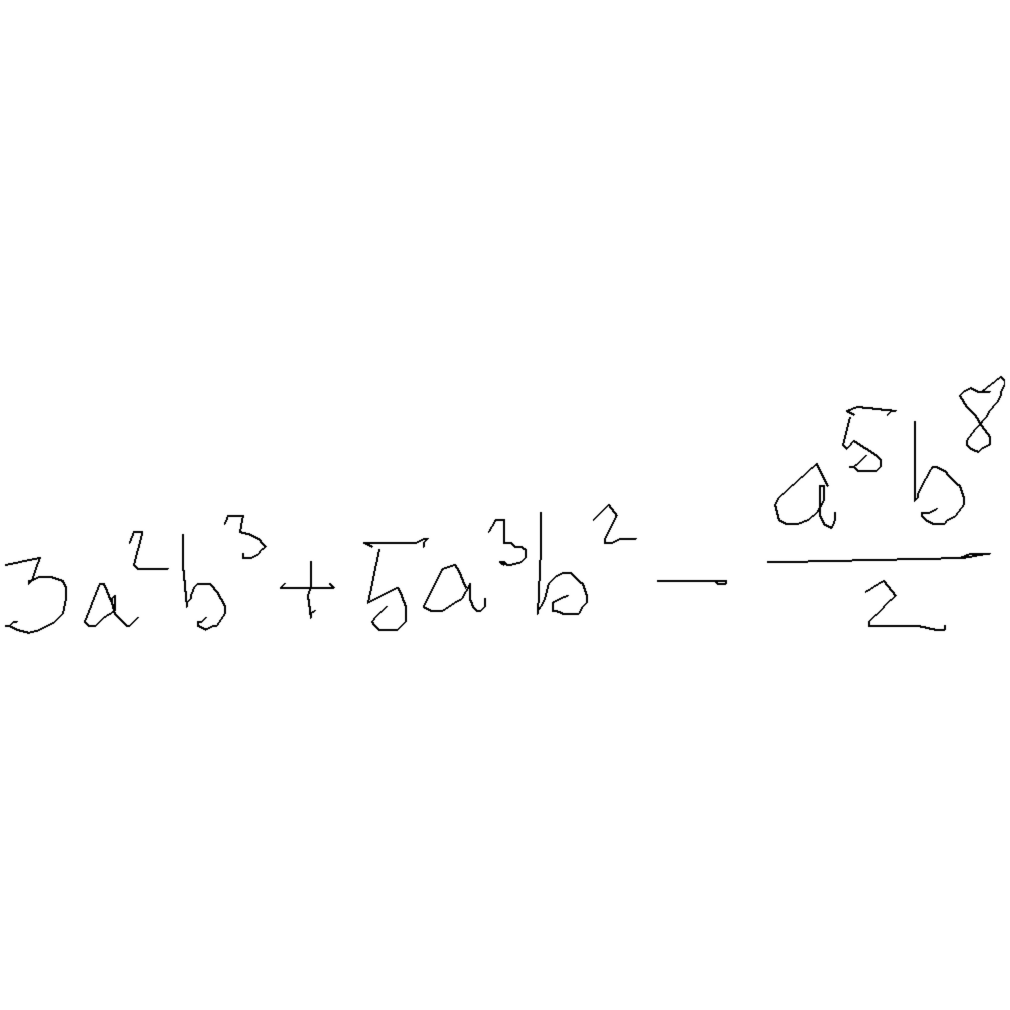 3a²b³ + 5a³b² − \frac{a⁵b⁸}{2}